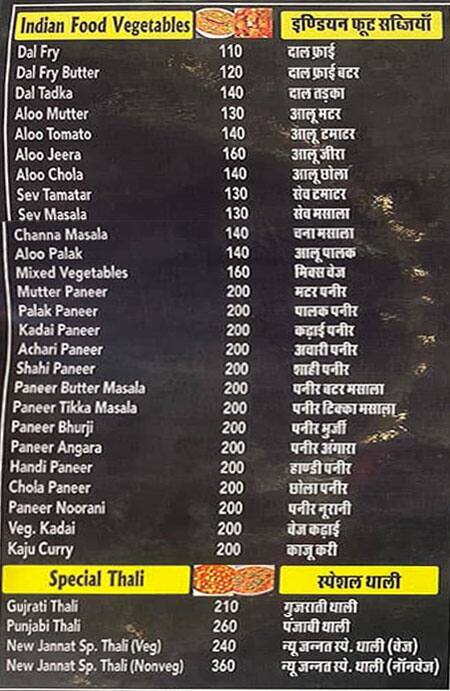 Indian Food Vegetables इण्डियन फूट सब्जियाँ
Dal Fry 110 दाल फ्राई
Dal Fry Butter 120 दाल फ्राई बटर
Dal Tadka 140 दाल तड़का
Aloo Mutter 130 आलू मटर
Aloo Tomato 140 आलू टमाटर
Aloo Jeera 160 आलू जीरा
Aloo Chola 140 आलू छोला
Sev Tamatar 130 सेव टमाटर
Sev Masala 130 सेव मसाला
Channa Masala 140 चना मसाला
Aloo Palak 140 आलू पालक
Mixed Vegetables 160 मिक्स वेज
Mutter Paneer 200 मटर पनीर
Palak Paneer 200 पालक पनीर
Kadai Paneer 200 कढ़ाई पनीर
Achari Paneer 200 अचारी पनीर
Shahi Paneer 200 शाही पनीर
Paneer Butter Masala 200 पनीर बटर मसाला
Paneer Tikka Masala 200 पनीर टिक्का मसाला
Paneer Bhurji 200 पनीर भुर्जी
Paneer Angara 200 पनीर अंगारा
Handi Paneer 200 हाण्डी पनीर
Chola Paneer 200 छोला पनीर
Paneer Noorani 200 पनीर नूरानी
Veg. Kadai 200 वेज कढ़ाई
Kaju Curry 200 काजू करी
Special Thali स्पेशल थाली
Gujrati Thali 210 गुजराती थाली
Punjabi Thali 260 पंजाबी थाली
New Jannat Sp. Thali (Veg) 240 न्यू जन्नत स्पे. थाली (वेज)
New Jannat Sp. Thali (Nonveg) 360 न्यू जन्नत स्पे. थाली (नॉनवेज)